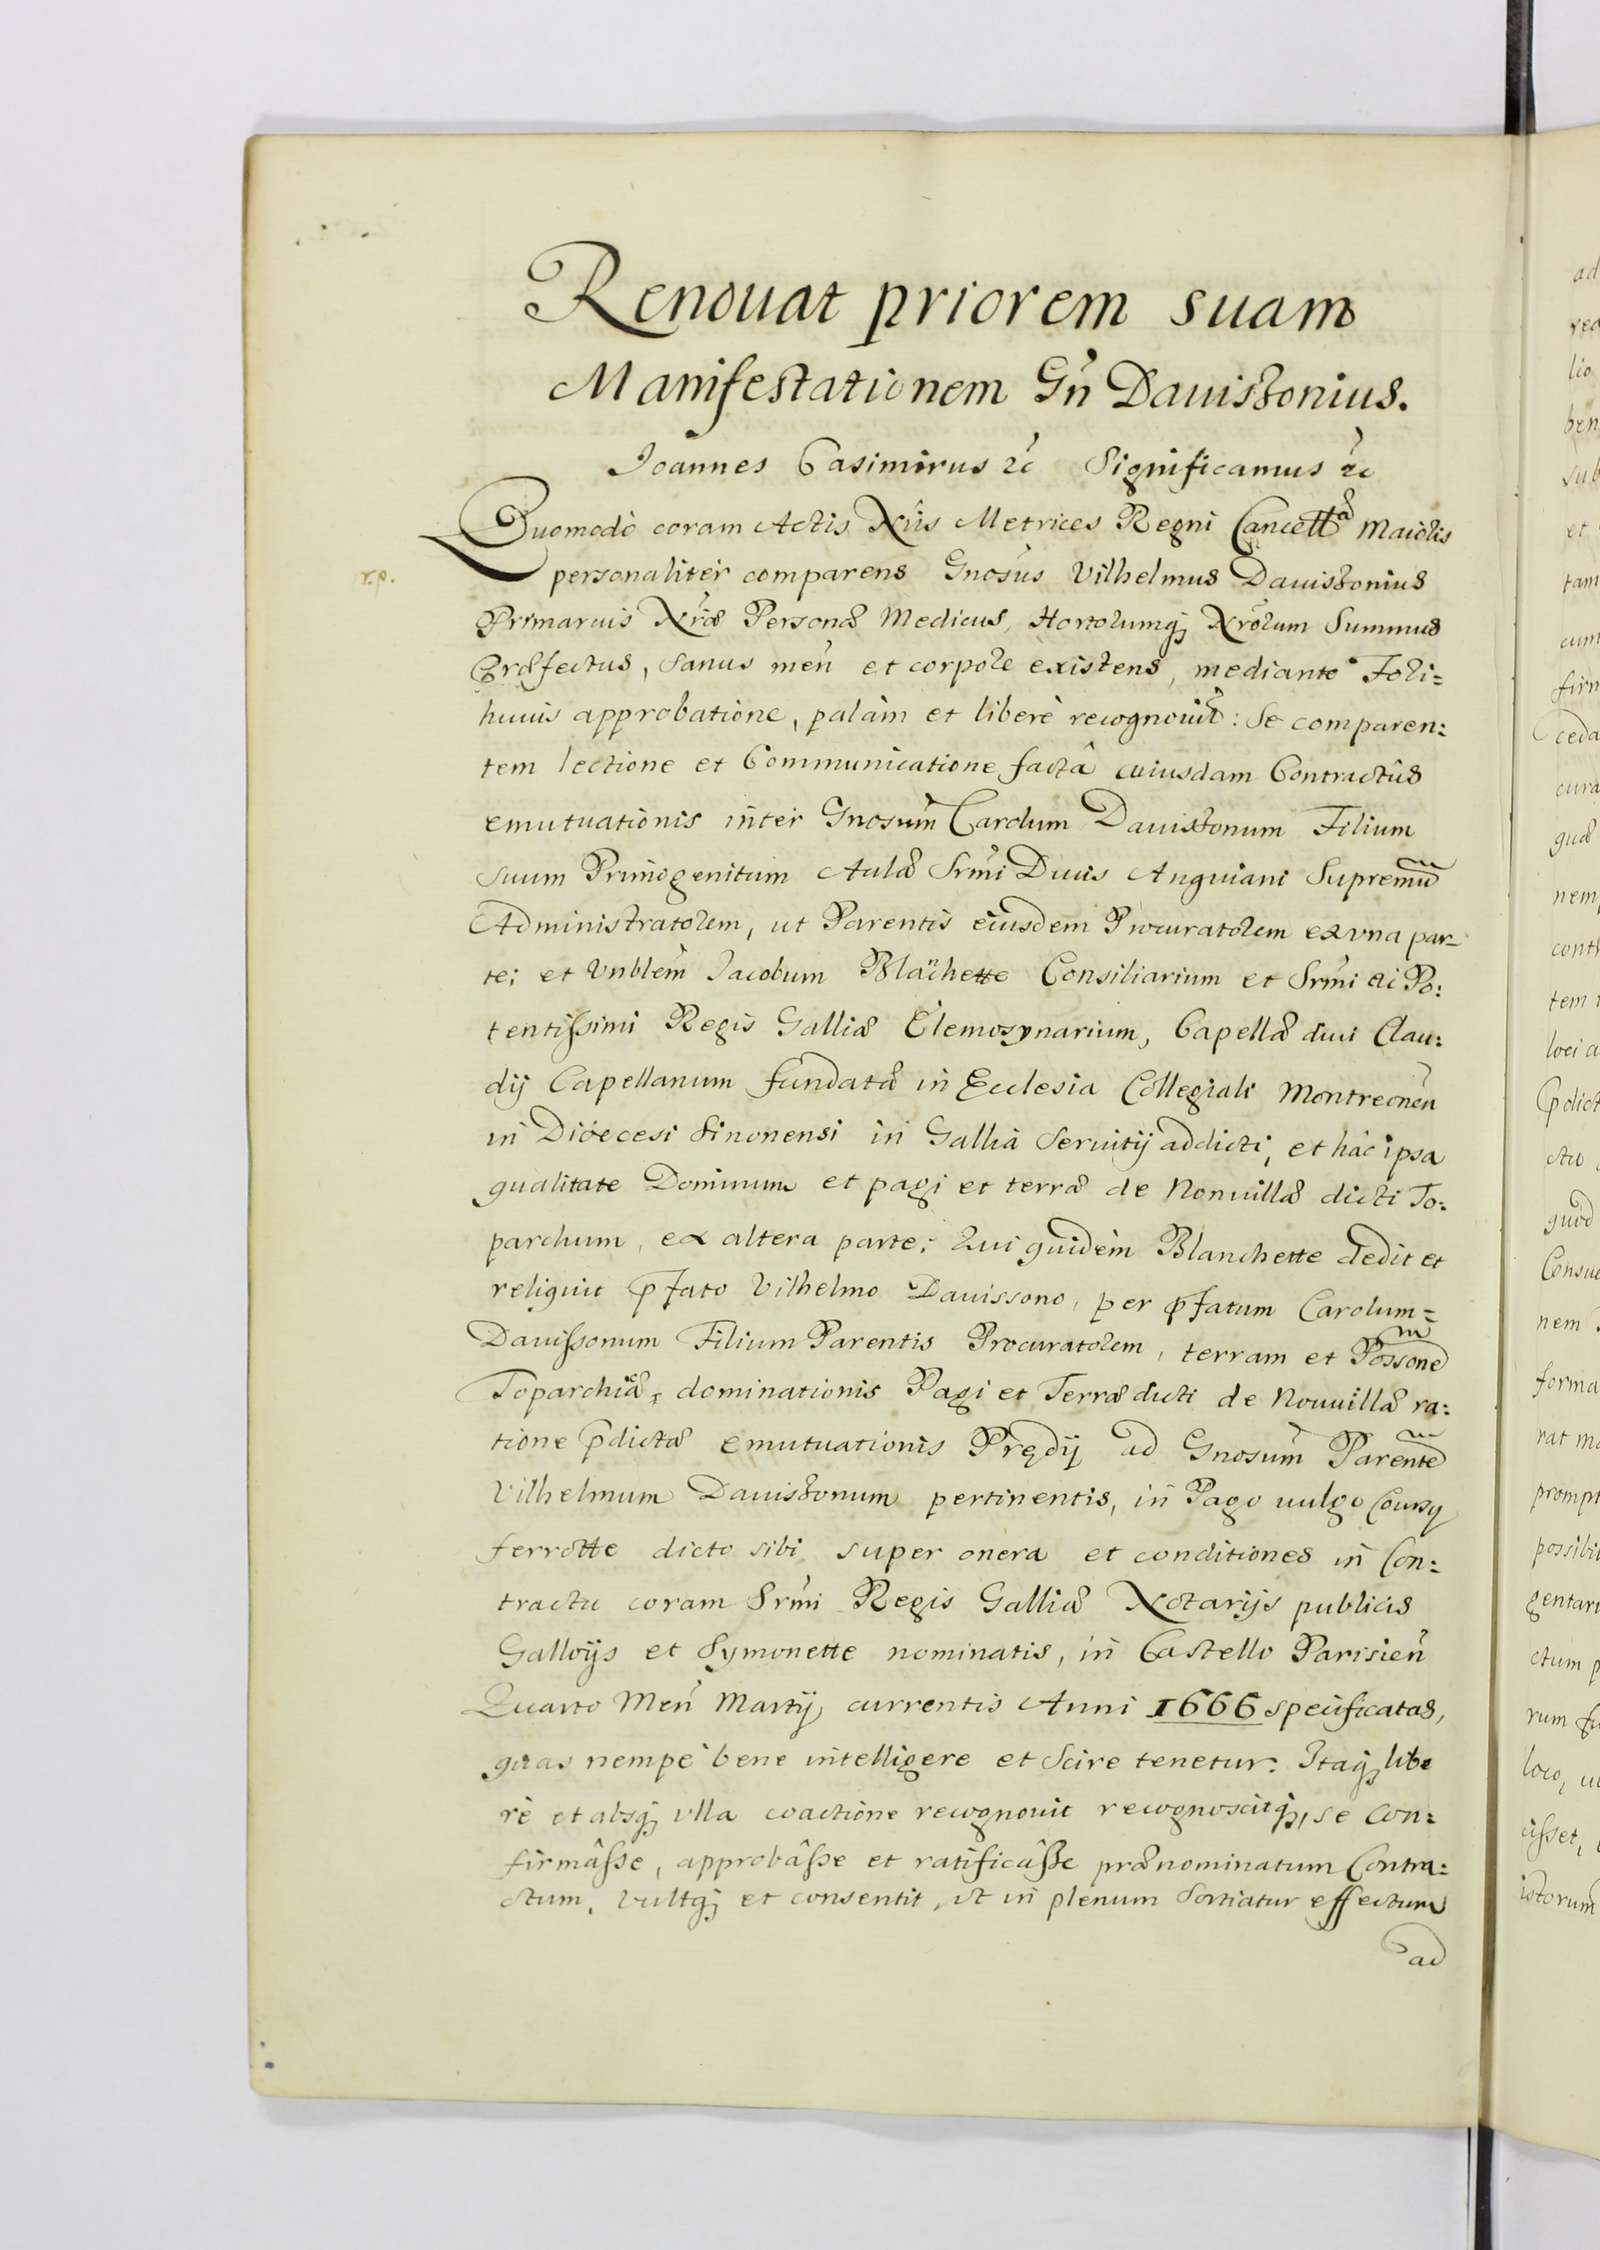 Renouat priorem suam
Manifestationem Gñ Dauissonius.
Joannes Casimirus &c Significamus &c
Quomodò coram Actis Nrīs Metrices Regni Cancellᵃ Maioris
r.p.
personaliter comparens Gnosus Vilhelmus Dauissonius
Primarius Nræ Personæ Medicus, Hortorumq; Nrorum Summus
Præfectus, sanus men et corpore existens, mediante Fori=
huius approbatione, palàm et liberè recognouit: Se comparen:
tem lectione et Communicatione factâ cuiusdam Contractûs
emutuationis inter Gnosum Carolum Dauissonum Filium
suum Primogenitum Aulæ Srmi Ducis Anguiani Supremū
Administratorem, ut Parentis eiusdem Procuratorem ex vna par=
te; et Vnblem Jacobum Blachette Consiliarium et Srmi ac Po:
tentissimi Regis Galliæ Elemosynarium, Capellæ diui Clau:
dij Capellanum fundatæ in Ecclesia Collegiali Montreonen
in Dioecesi Sinonensi in Gallia Seruitij addicti, et hâc ipsa
qualitate Dominum et pagi et terræ de Nonuillæ dicti To:
parchum, ex altera parte; Qui quidem Blanchette dedit et
reliquit p̄fato Vilhelmo Dauissono, per p̄fatum Carolum=
Dauissonum Filium Parentis Procuratorem, terram et Possonē
Toparchiæ, dominationis Pagi et Terræ dicti de Nouuillæ ra:
tione p̄dictæ emutuationis Prędij ad Gnosum Parentē
Vilhelmum Dauissonum pertinentis, in Pago uulgo Coursy
ferrotte dicto sibi super onera et conditiones in Con:
tractu coram Srmi Regis Galliæ Notarijs publicis
Galloijs et Symonette nominatis, in Castello Parisien
Quarto Men Martij currentis Anni 1666 specificatas,
quas nempè bene intelligere et Scire tenetur. Itaq; libe
rè et absq; vlla coactione recognouit recognoscitq;, se con:
firmâsse, approbâsse et ratificâsse prænominatum Contra:
ctum, vultq; et consentit, vt in plenum sortiatur effectum
ad